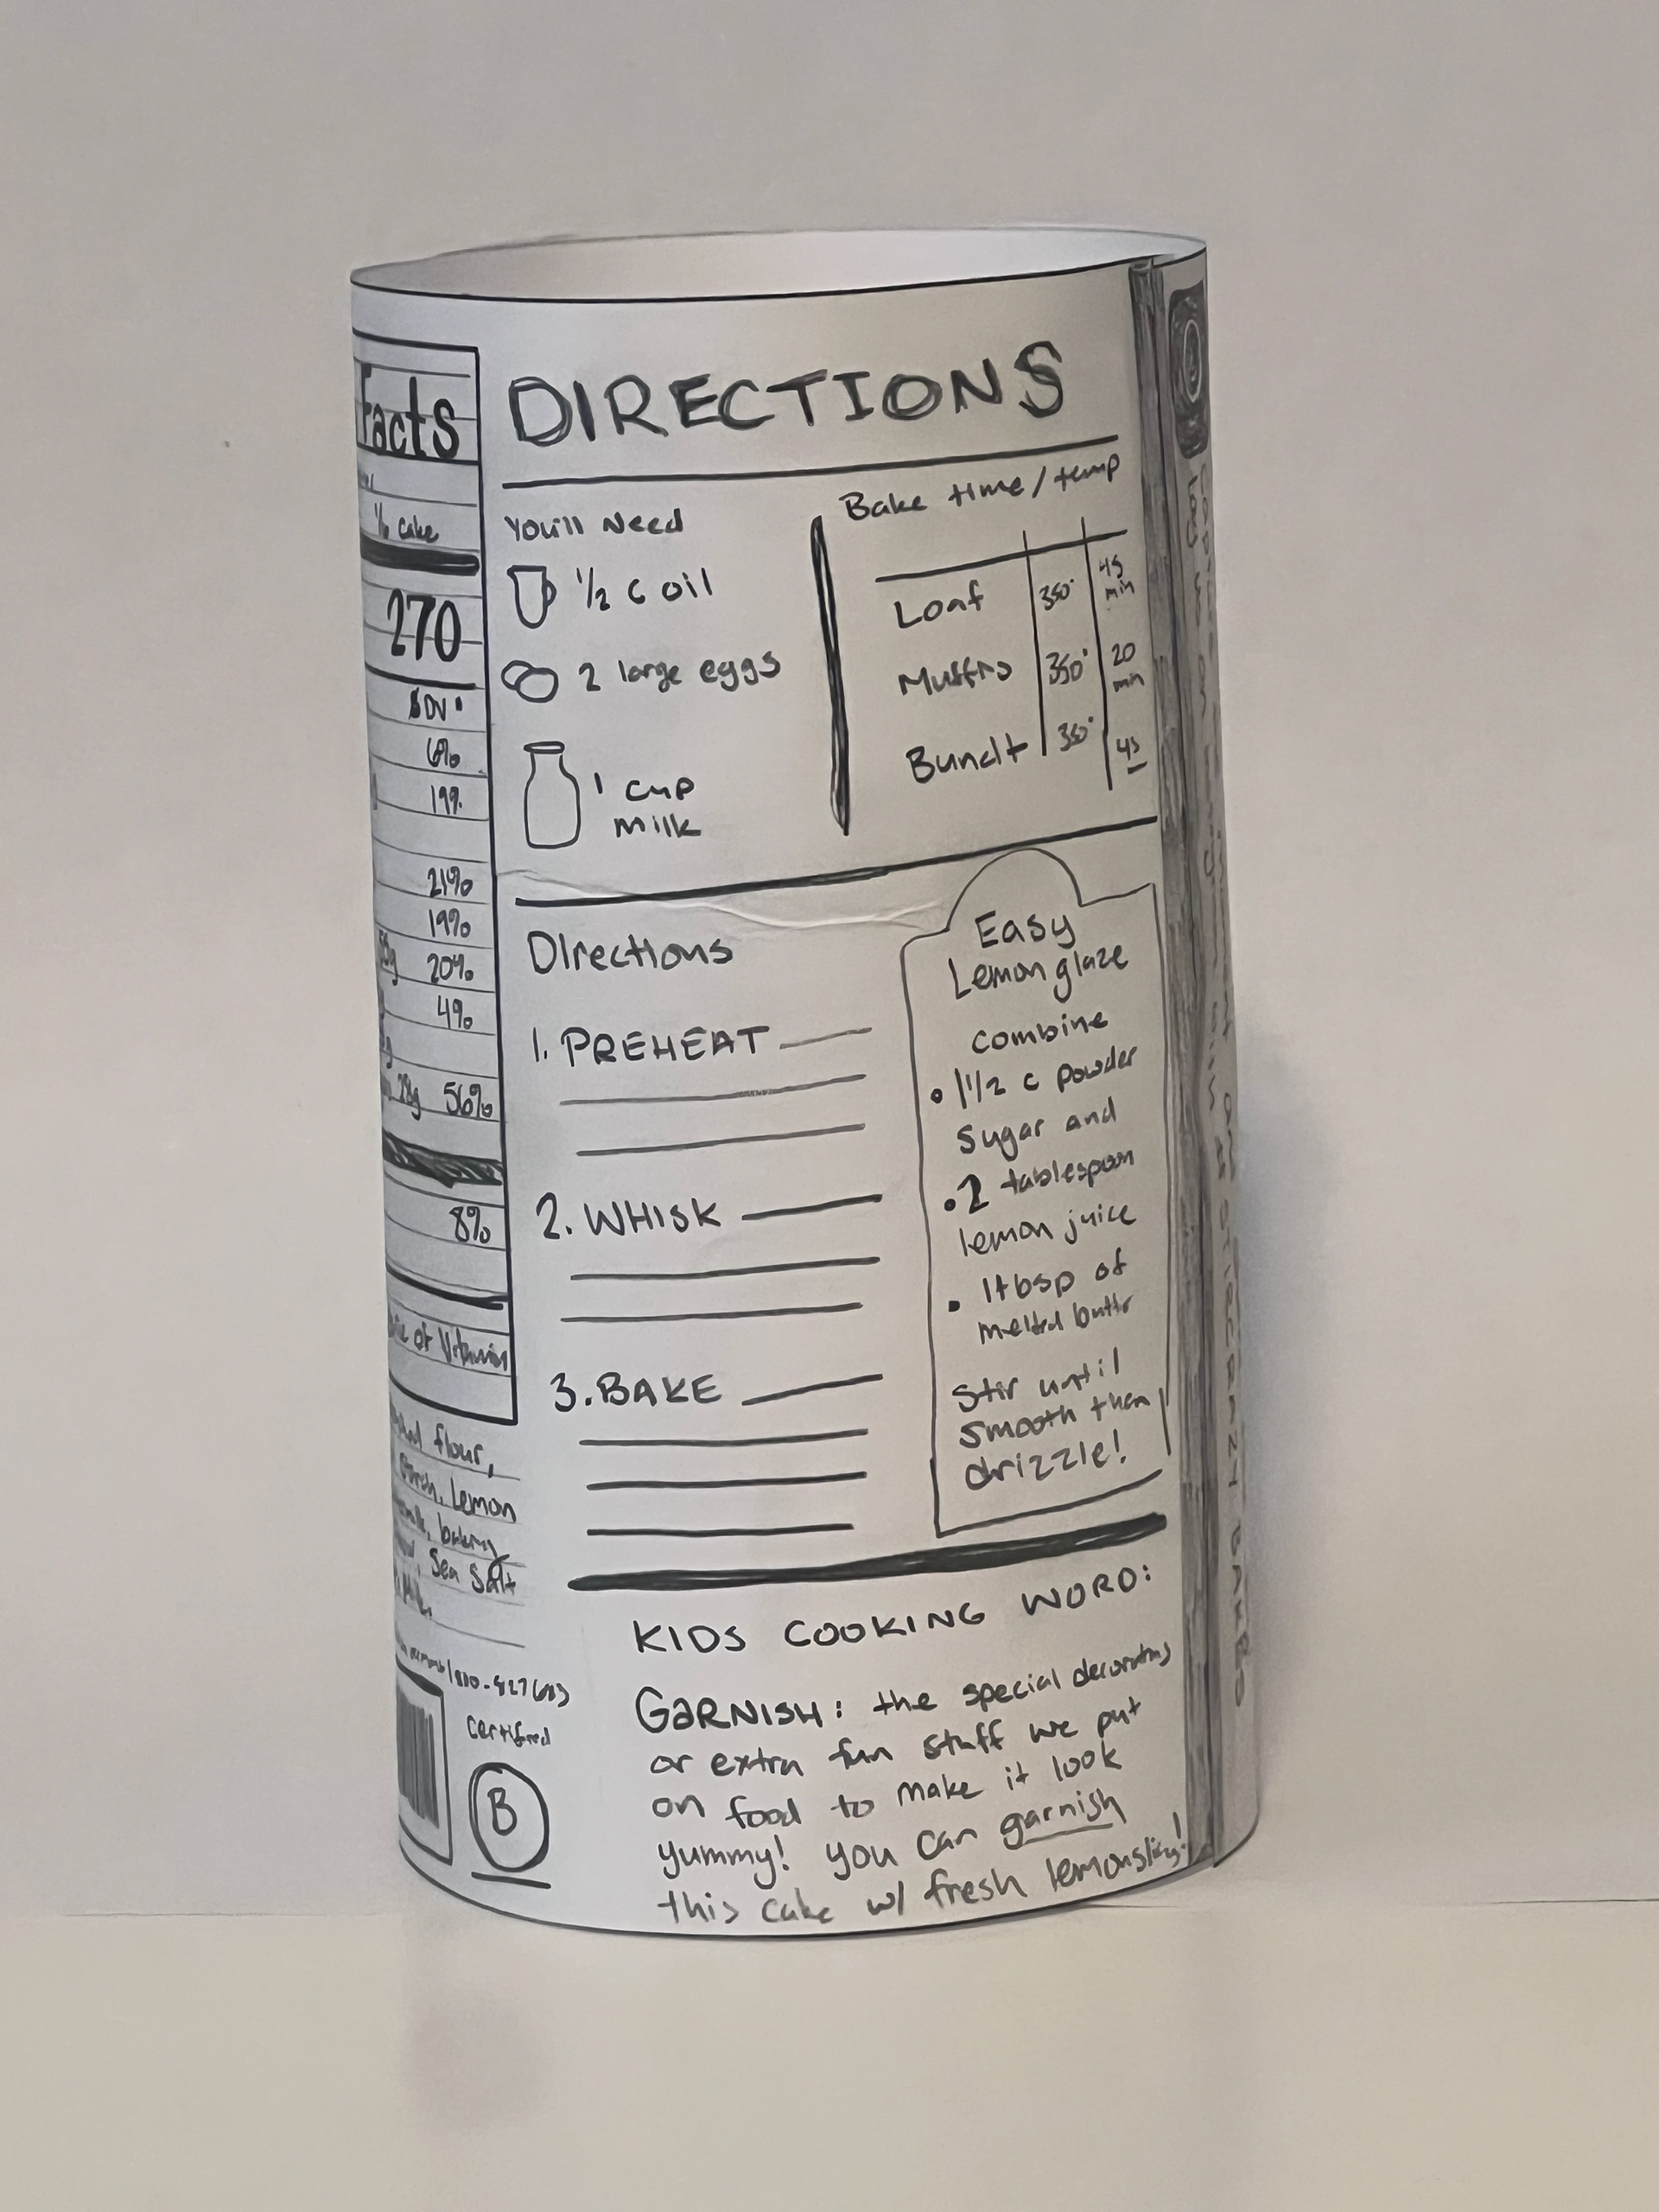 Facts
1/6 cake
270
%DV*
6%
19%
21%
19%
20%
4%
28g 56%
8%
of Vitamin
flour,
Lemon
baking
Sea Salt
Certified
B
DIRECTIONS
You'll Need
1/2 C oil
2 large eggs
1 cup
milk
Bake time/temp
Loaf 350° 45 min
Muffins 350° 20 min
Bundt 350° 45
Directions
1. PREHEAT
2. WHISK
3. BAKE
Easy
Lemon glaze
combine
• 1 1/2 c powder
sugar and
• 2 tablespoon
lemon juice
• 1 tbsp of
melted butter
Stir until
smooth then
drizzle!
KIDS COOKING WORD:
GARNISH: the special decorating
or extra fun stuff we put
on food to make it look
yummy! you can garnish
this cake w/ fresh lemon slices!